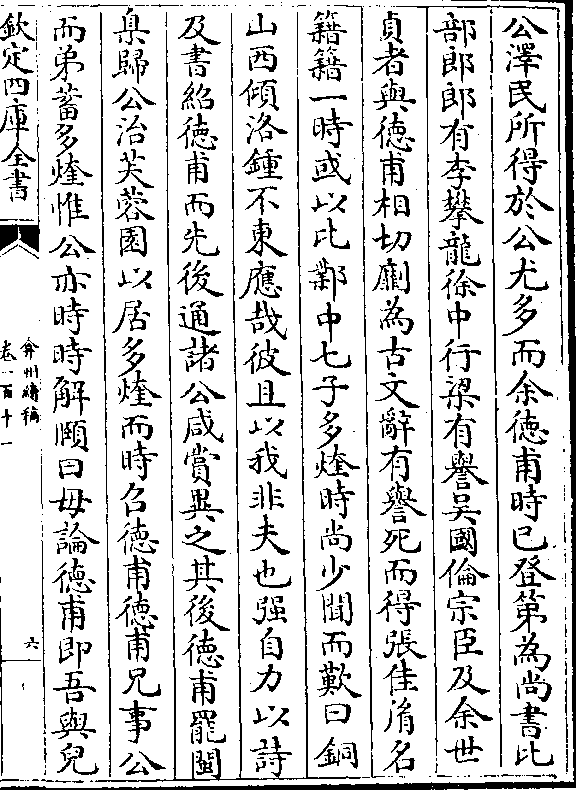 公澤民所得於公尤多而余徳甫時已登第為尚書比
部郎郎有李攀龍徐中行梁有譽吳國倫宗臣及余世
貞者與徳甫相切劘為古文辭有譽死而得張佳𦙍名
籍籍一時或以比鄴中七子多煃時尚少聞而歎曰銅
山西傾洛鍾不東應哉彼且以我非夫也强自力以詩
及書紹徳甫而先後通諸公咸賞異之其後徳甫罷閩
臬歸公治芙蓉園以居多煃而時召徳甫徳甫兄事公
而弟蓄多煃惟公亦時時解頤曰毋論徳甫即吾與兒
欽定四庫全書
弇州續稿
卷一百十一
六